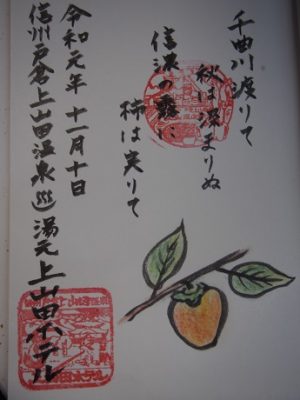 千曲川渡りて
秋は深まりぬ
信濃の露に
柿は実りて
令和元年 十一月十日
信州戸倉上山田温泉♨湯元上山田ホテル